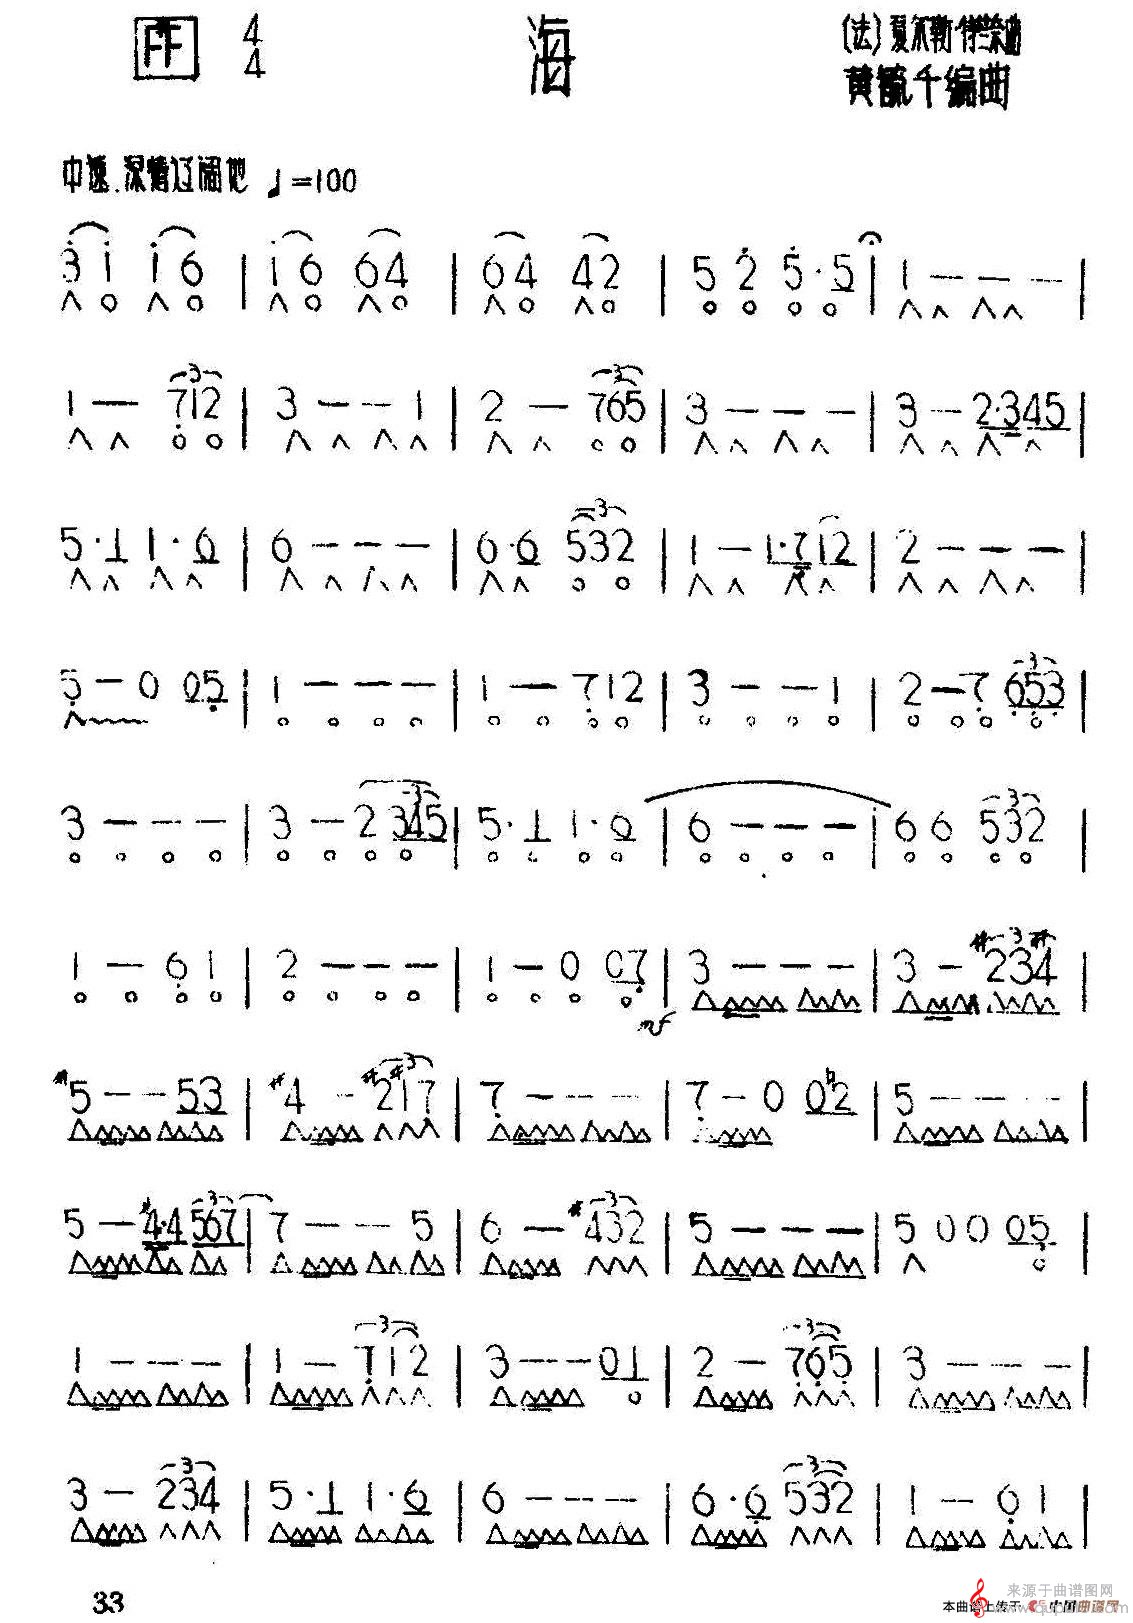 4
4
海
(法)夏尔勒·特兰奈曲
黄毓千编曲
中速.深情辽阔地 ♩=100
3 1 1 6 | 1 6 6 4 | 6 4 4 2 | 5 2 5·5 | 1 – – –
3 3
1 – 7 1 2 | 3 – – 1 | 2 – 7 6 5 | 3 – – – | 3 – 2·3 4 5
3
5·1 1·6 | 6 – – – | 6·6 5 3 2 | 1 – 1·7 1 2 | 2 – – –
3
5 – 0 0 5 | 1 – – – | 1 – 7 1 2 | 3 – – 1 | 2 – 7 6 5 3
3 3
3 – – – | 3 – 2 3 4 5 | 5·1 1·6 | 6 – – – | 6 6 5 3 2
3
1 – 6 1 | 2 – – – | 1 – 0 0 7 | 3 – – – | 3 – #2 3 #4
mf
3
#5 – – 5 3 | #4 – #2 #1 7 | 7 – – – | 7 – 0 0 ♮2 | 5 – – –
3 3
5 – #4·4 5 6 7 | 7 – – 5 | 6 – #4 3 2 | 5 – – – | 5 0 0 0 5
3 3
1 – – – | 1 – 7 1 2 | 3 – – 0 1 | 2 – 7 6 5 | 3 – – –
3 3
3 – 2 3 4 | 5·1 1·6 | 6 – – – | 6·6 5 3 2 | 1 – 6 1
33
来源于曲谱图网
本曲谱上传于
中国曲谱网